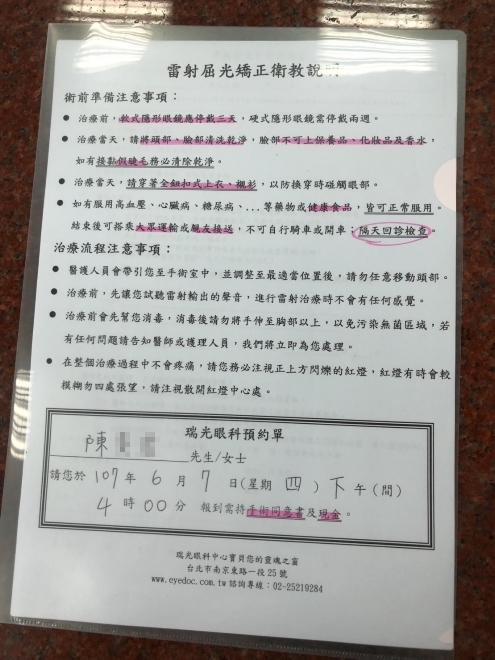 雷射屈光矯正衛教說明
術前準備注意事項：
● 治療前，軟式隱形眼鏡應停戴三天，硬式隱形眼鏡需停戴兩週。
● 治療當天，請將頭部、臉部清洗乾淨，臉部不可上保養品、化妝品及香水，
如有接黏假睫毛務必清除乾淨。
● 治療當天，請穿著全鈕扣式上衣、襯衫，以防換穿時碰觸眼部。
● 如有服用高血壓、心臟病、糖尿病、...等藥物或健康食品，皆可正常服用。
結束後可搭乘大眾運輸或親友接送，不可自行騎車或開車；隔天回診檢查。
治療流程注意事項：
● 醫護人員會帶引您至手術室中，並調整至最適當位置後，請勿任意移動頭部。
● 治療前，先讓您試聽雷射輸出的聲音，進行雷射治療時不會有任何感覺。
● 治療前會先幫您消毒，消毒後請勿將手伸至胸部以上，以免污染無菌區域，若
有任何問題請告知醫師或護理人員，我們將立即為您處理。
● 在整個治療過程中不會疼痛，請您務必注視正上方閃爍的紅燈，紅燈有時會較
模糊勿四處張望，請注視散開紅燈中心處。
瑞光眼科預約單
陳 先生/女士
請您於 107 年 6 月 7 日(星期 四 ) 下 午(間)
4 時 00 分 報到需持手術同意書及現金。
瑞光眼科中心寶貝您的靈魂之窗
台北市南京東路一段25號
www.eyedoc.com.tw 諮詢專線：02-25219284